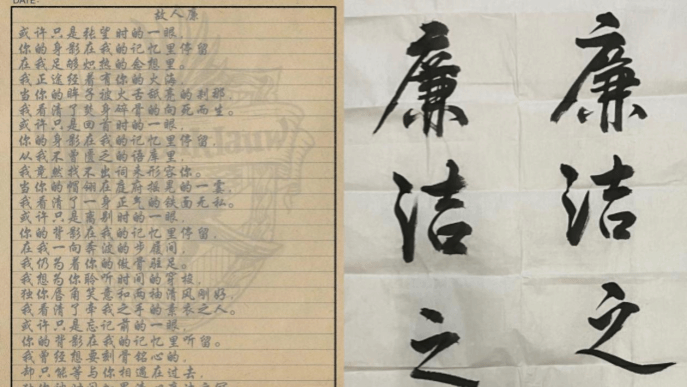 DATE:
故人廉
或许只是张望时的一眼，
你的身影在我的记忆里停留
在我足够炽热的念想里。
我正途经着有你的火海，
当你的眸子被火舌舔亮的刹那，
我看清了焚身碎骨的向死而生。
或许只是回首时的一眼，
你的身影在我的记忆里停留，
从我不曾匮乏的语库里，
我竟然找不出词来形容你。
当你的帽翎在庭府摇晃的一霎，
我看清了一身正气的铁面无私。
或许只是离别时的一眼，
你的背影在我的记忆里停留，
在我一向奔波的步履间，
我仍为着你的傲骨驻足。
我想为你聆听时间的穿梭，
独你唇角笑意和两袖清风刚好，
我看清了牵我之手的素衣之人。
或许只是忘记前的一眼，
你的背影在我的记忆里听留。
我曾经想要刻骨铭心的，
却只能等与你相遇在过去，
廉洁之
廉洁之